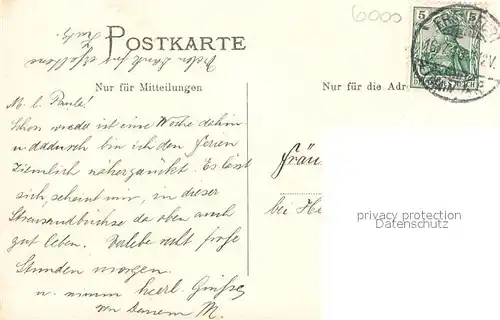 6000
Vielen Dank für
POSTKARTE
Nur für Mitteilungen
Nur für die Adr
5
5
M. l. Paula!
Schon wieder ist eine Woche dahin
u dadurch bin ich den Ferien
ziemlich nähergerückt. Es lässt
sich, scheint mir, in dieser
da oben auch
gut leben. Verlebe recht frohe
Stunden morgen.
u. nimm herzl. Grüsse
von Deinem M.
Fräu
bei He
privacy protection
Datenschutz